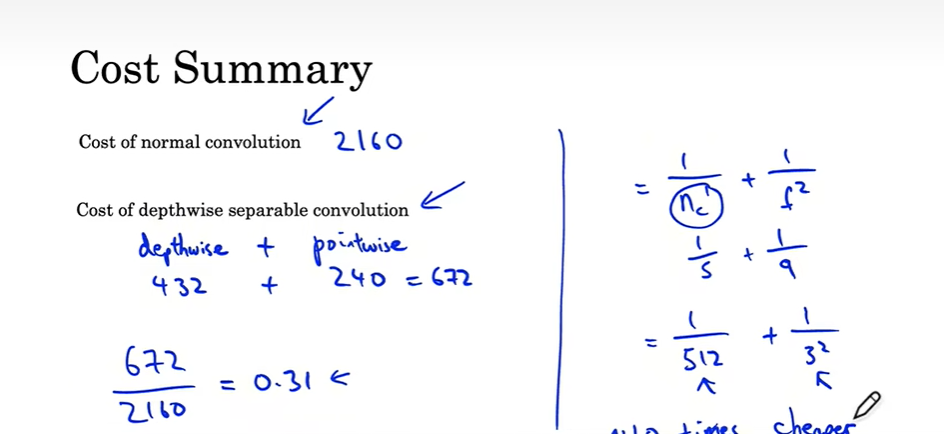 Cost Summary
Cost of normal convolution 2160
Cost of depthwise separable convolution
depthwise + pointwise
432 + 240 = 672
672/2160 = 0.31 ←
= 1/n_c' + 1/f²
1/5 + 1/9
= 1/512 + 1/3²
times cheaper